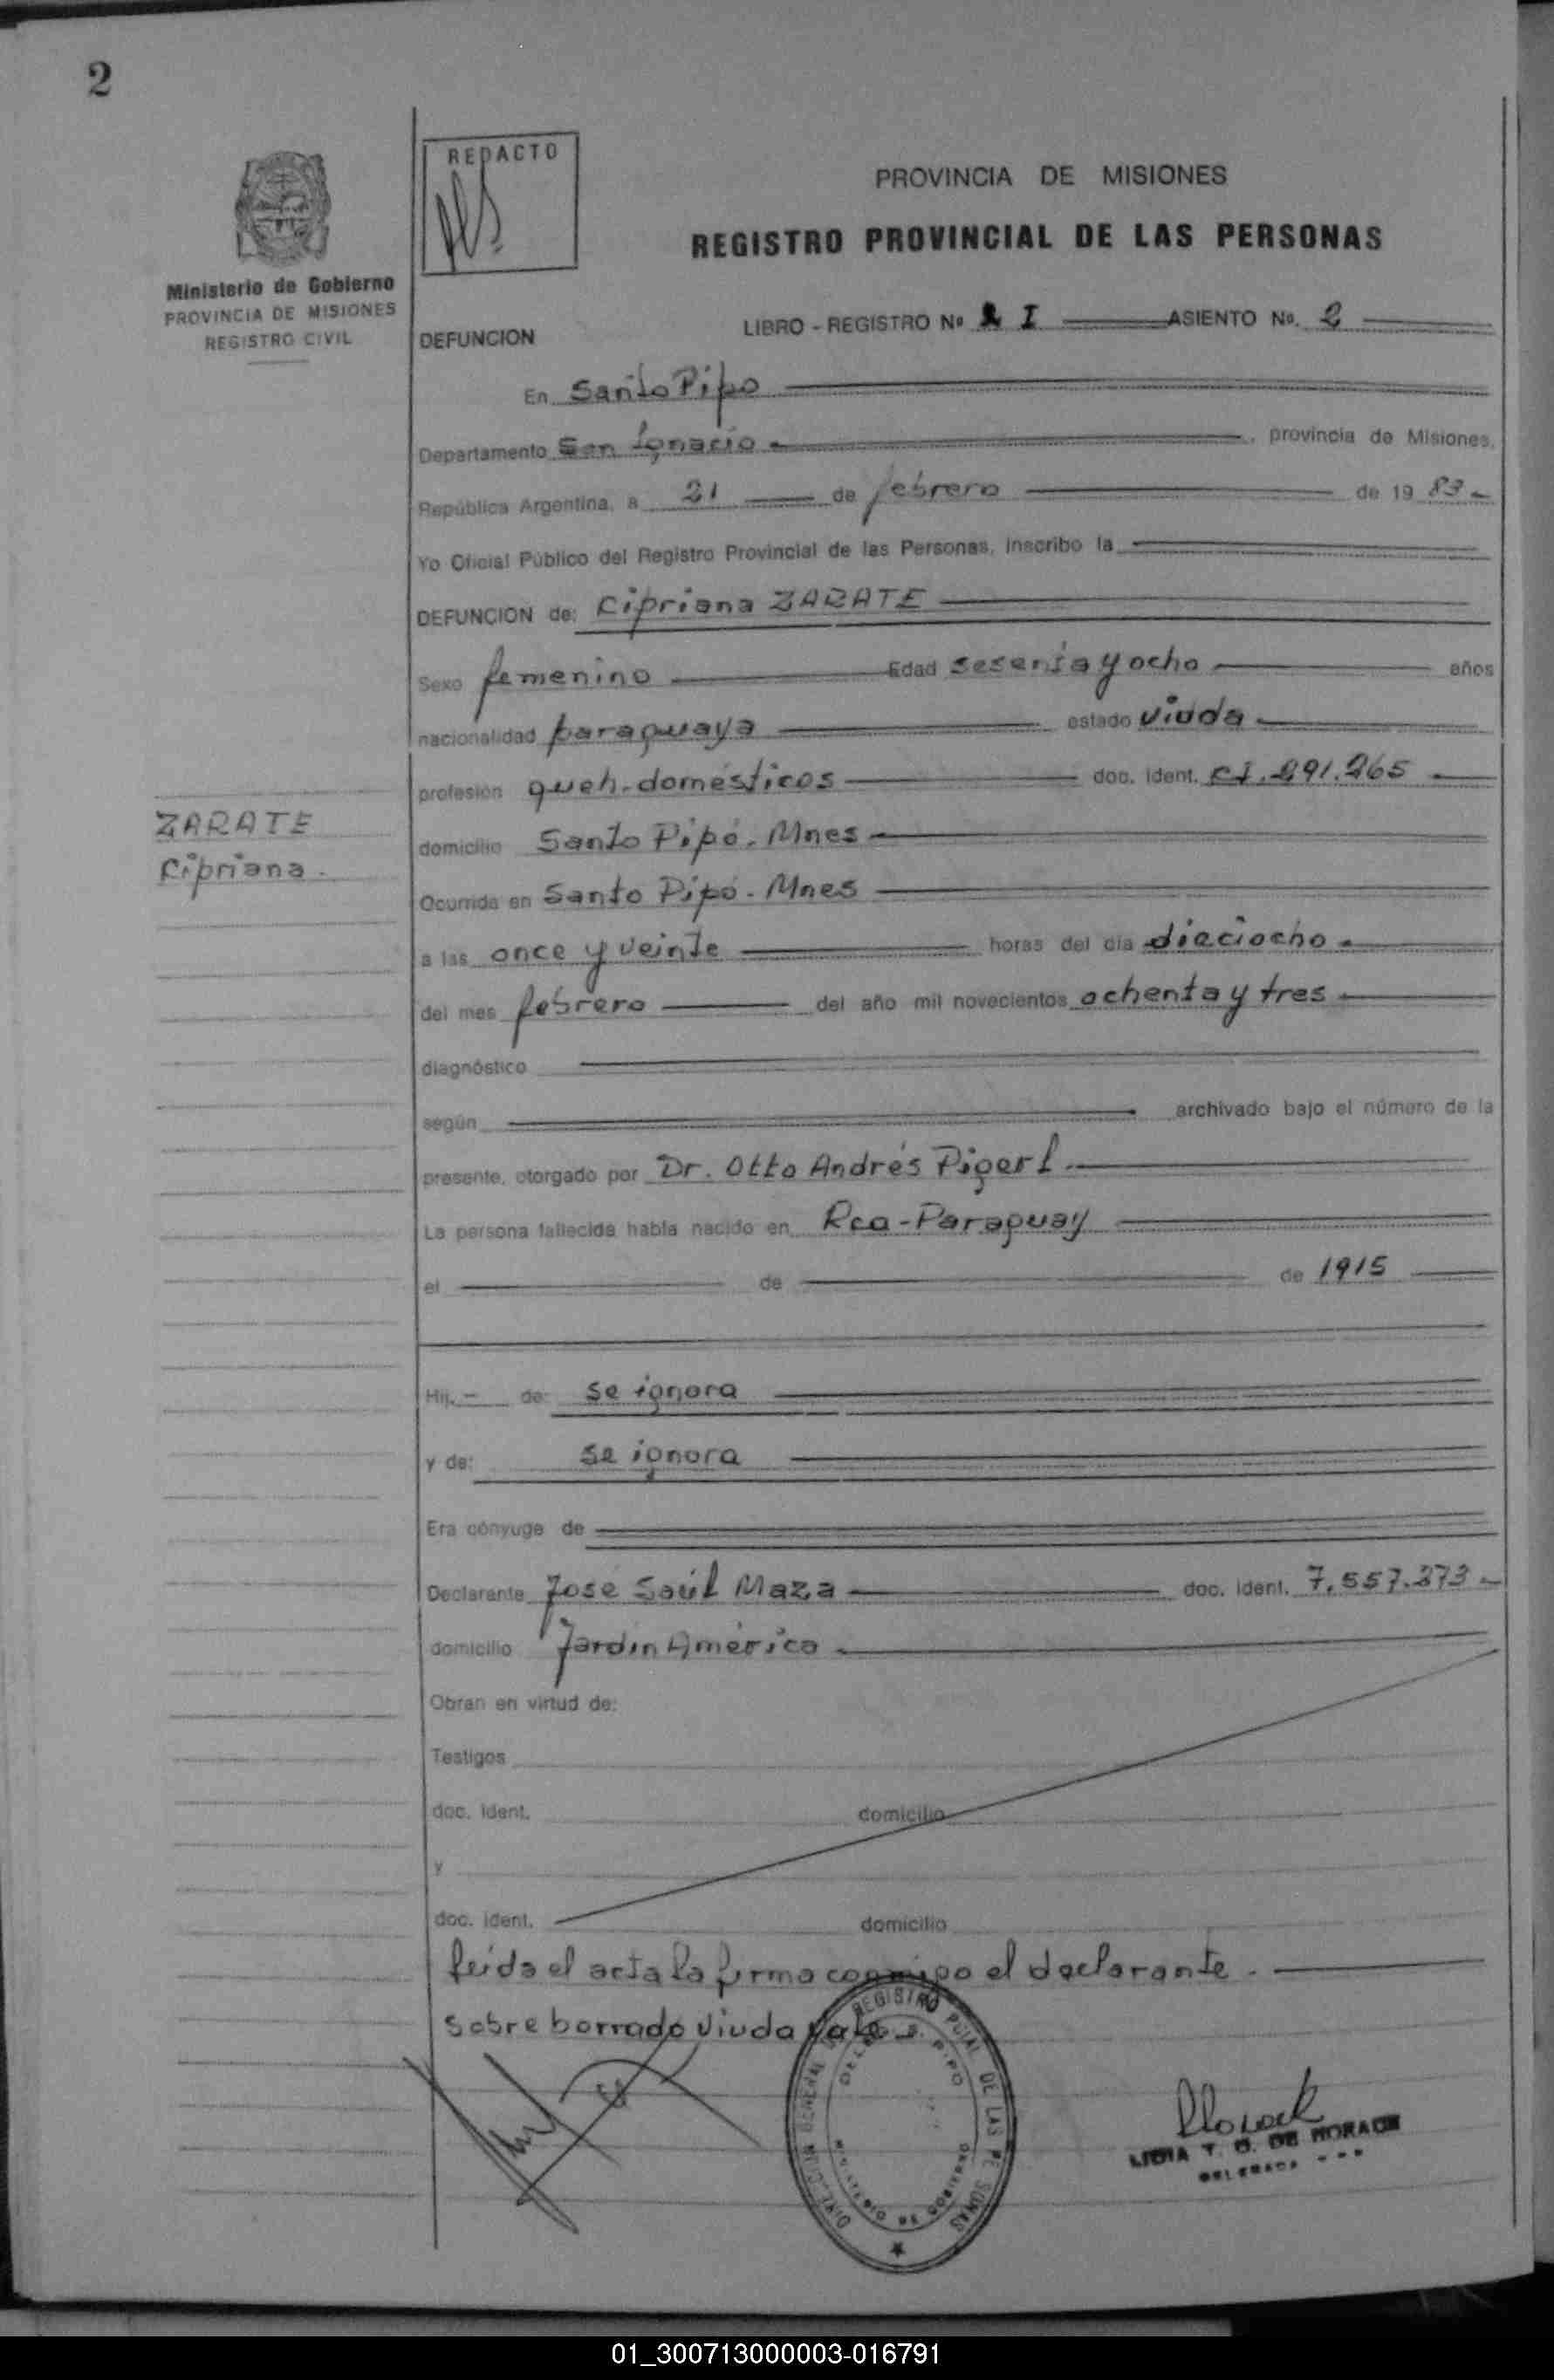 2
REDACTO
PROVINCIA DE MISIONES
REGISTRO PROVINCIAL DE LAS PERSONAS
Ministerio de Gobierno
PROVINCIA DE MISIONES
REGISTRO CIVIL
DEFUNCION
LIBRO - REGISTRO Nº I ASIENTO Nº. 2
En Santo Pipo
Departamento San Ignacio , provincia de Misiones,
República Argentina, a 21 de febrero de 19 83
Yo Oficial Público del Registro Provincial de las Personas, inscribo la
DEFUNCION de: Cipriana ZARATE
Sexo femenino Edad sesenta y ocho años
nacionalidad paraguaya estado viuda
profesión queh. domésticos doc. ident. CI. 291.265
ZARATE
Cipriana.
domicilio Santo Pipó. Mnes
Ocurrida en Santo Pipó. Mnes
a las once y veinte horas del día dieciocho
del mes febrero del año mil novecientos ochenta y tres
diagnóstico
según archivado bajo el número de la
presente, otorgado por Dr. Otto Andrés Pigerl.
La persona fallecida había nacido en Rca-Paraguay
el de de 1915
Hij. - de: se ignora
y de: se ignora
Era cónyuge de
Declarante José Saúl Maza doc. ident. 7.557.373
domicilio Jardín América
Obran en virtud de:
Testigos
doc. ident. domicilio
y
doc. ident. domicilio
leída el acta la firma conmigo el declarante.
Sobre borrado viuda vale.
DIRECCION GENERAL DEL REGISTRO PCIAL DE LAS PERSONAS
MINISTERIO DE GOBIERNO
LIDIA T. G. DE HORACK
DELEGADA
01_300713000003-016791